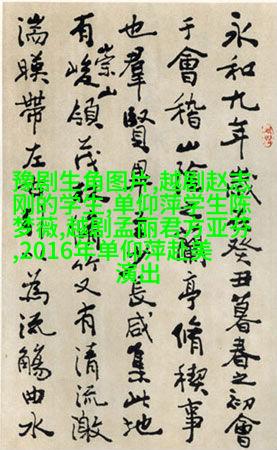 永和九年癸丑暮春之初會
于會稽山蘭亭脩稧事
也羣賢長咸集此地
有崇山峻領茂又有清流激
湍暎帶左為流觴曲水
豫剧生角图片,越剧赵志
刚的学生,单仰萍学生陈
梦薇,越剧孟丽君方亚芬
,2016年单仰萍赴美
演出